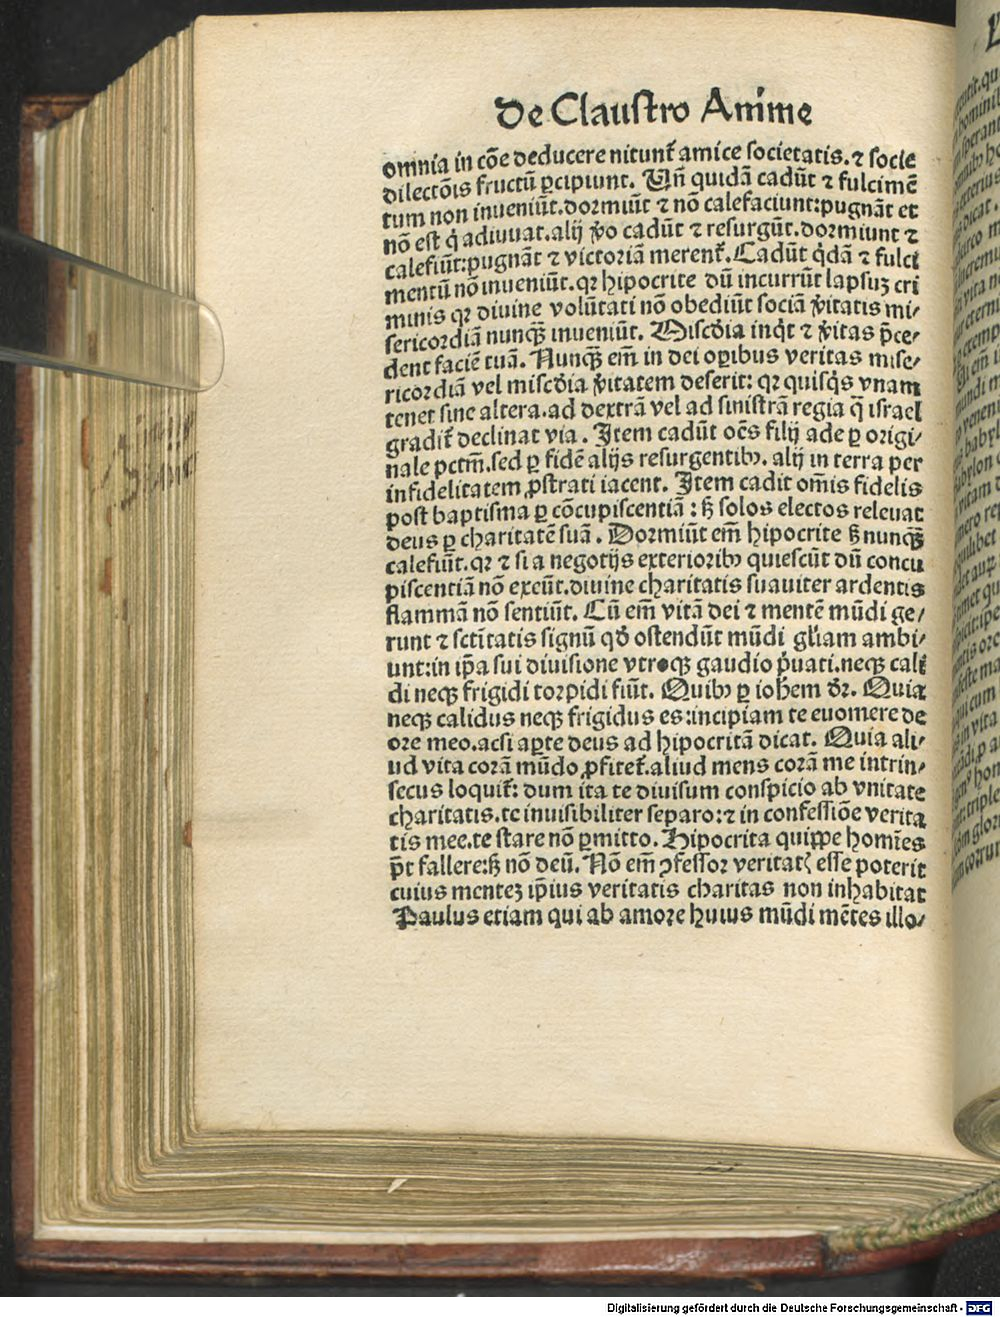 De Claustro Anime
omnia in cōe deducere nitunt᷑ amice societatis. ⁊ socie
dilectōis fructū ꝑcipiunt. Vn̄ quidā cadūt ⁊ fulcimē
tum non inueniūt. dormiūt ⁊ nō calefaciunt: pugnāt et
nō est q̇ adiuuat. alij v̓o cadūt ⁊ resurgūt. dormiunt ⁊
calefiūt: pugnāt ⁊ victoriā merent᷑. Cadūt q̇dā ⁊ fulci
mentū nō inueniūt. qꝛ hipocrite dū incurrūt lapsuꝫ cri
minis qꝛ diuine volūtati nō obediūt sociā v̓itatis mi⸗
sericordiā nunqꝫ inueniūt. Misc̓dia inq̇t ⁊ v̓itas p̄ce⸗
dent faciē tuā. Nunqꝫ em̄ in dei oꝑibus veritas mise⸗
ricordiā vel misc̓dia v̓itatem deserit: qꝛ quisq̇s vnam
tenet sine altera. ad dextrā vel ad sinistrā regia q̄ israel
gradit᷑ declinat via. Item cadūt oēs filij ade ꝑ origi⸗
nale pctm̄. sed ꝑ fidē alijs resurgentibꝰ. alij in terra per
infidelitatem ꝓstrati iacent. Item cadit om̄is fidelis
post baptisma ꝑ cōcupiscentiā: sꝫ solos electos releuat
deus ꝑ charitatē suā. Dormiūt em̄ hipocrite sꝫ nunqꝫ
calefiūt. qꝛ ⁊ si a negotijs exterioribꝰ quiescūt dū concu
piscentiā nō exeūt. diuine charitatis suauiter ardentis
flammā nō sentiūt. Cū em̄ vitā dei ⁊ mentē mūdi ge⸗
runt ⁊ sctītatis signū qḋ ostendūt mūdi gl̓iam ambi⸗
unt: in ip̄a sui diuisione vtroqꝫ gaudio p̓uati. neqꝫ cali
di neqꝫ frigidi torpidi fiūt. Quibꝰ ꝑ ioh̄em dr̄. Quia
neqꝫ calidus neqꝫ frigidus es: incipiam te euomere de
ore meo. acsi aꝑte deus ad hipocritā dicat. Quia ali⸗
ud vita corā mūdo ꝓfitet᷑. aliud mens corā me intrin⸗
secus loquit᷑: dum ita te diuisum conspicio ab vnitate
charitatis. te inuisibiliter separo: ⁊ in confessiōe verita
tis mee. te stare nō ꝑmitto. Hipocrita quippe homīes
p̄t fallere: sꝫ nō deū. Nō em̄ ꝯfessor veritatꝭ esse poterit
cuius menteꝫ ip̄ius veritatis charitas non inhabitat
Paulus etiam qui ab amore huius mūdi mētes illo⸗
Digitalisierung gefördert durch die Deutsche Forschungsgemeinschaft - DFG